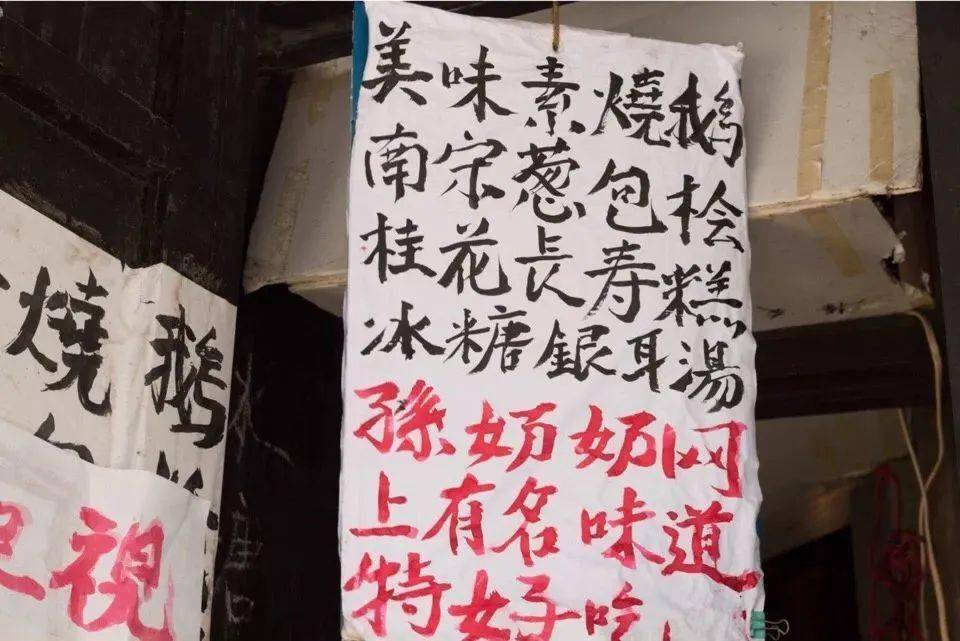 美味素燒鹅
南宋葱包桧
桂花長寿糕
冰糖銀耳湯
孫奶奶网
上有名味道
特好吃
燒鹅
視